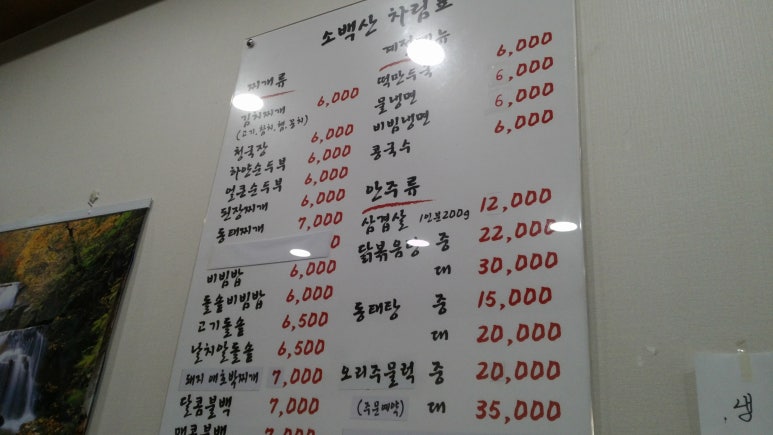 소백산 차림표
찌개류
김치찌개 6,000
(고기.참치.햄.꽁치)
청국장 6,000
하얀순두부 6,000
얼큰순두부 6,000
된장찌개 6,000
동태찌개 7,000
비빔밥 6,000
돌솥비빔밥 6,000
고기돌솥 6,500
날치알돌솥 6,500
돼지 애호박찌개 7,000
달콤불백 7,000
매콤불백
계절메뉴
떡만두국 6,000
물냉면 6,000
비빔냉면 6,000
콩국수 6,000
안주류
삼겹살 1인분200g 12,000
닭볶음탕 중 22,000
대 30,000
동태탕 중 15,000
대 20,000
오리주물럭 중 20,000
(주문예약) 대 35,000